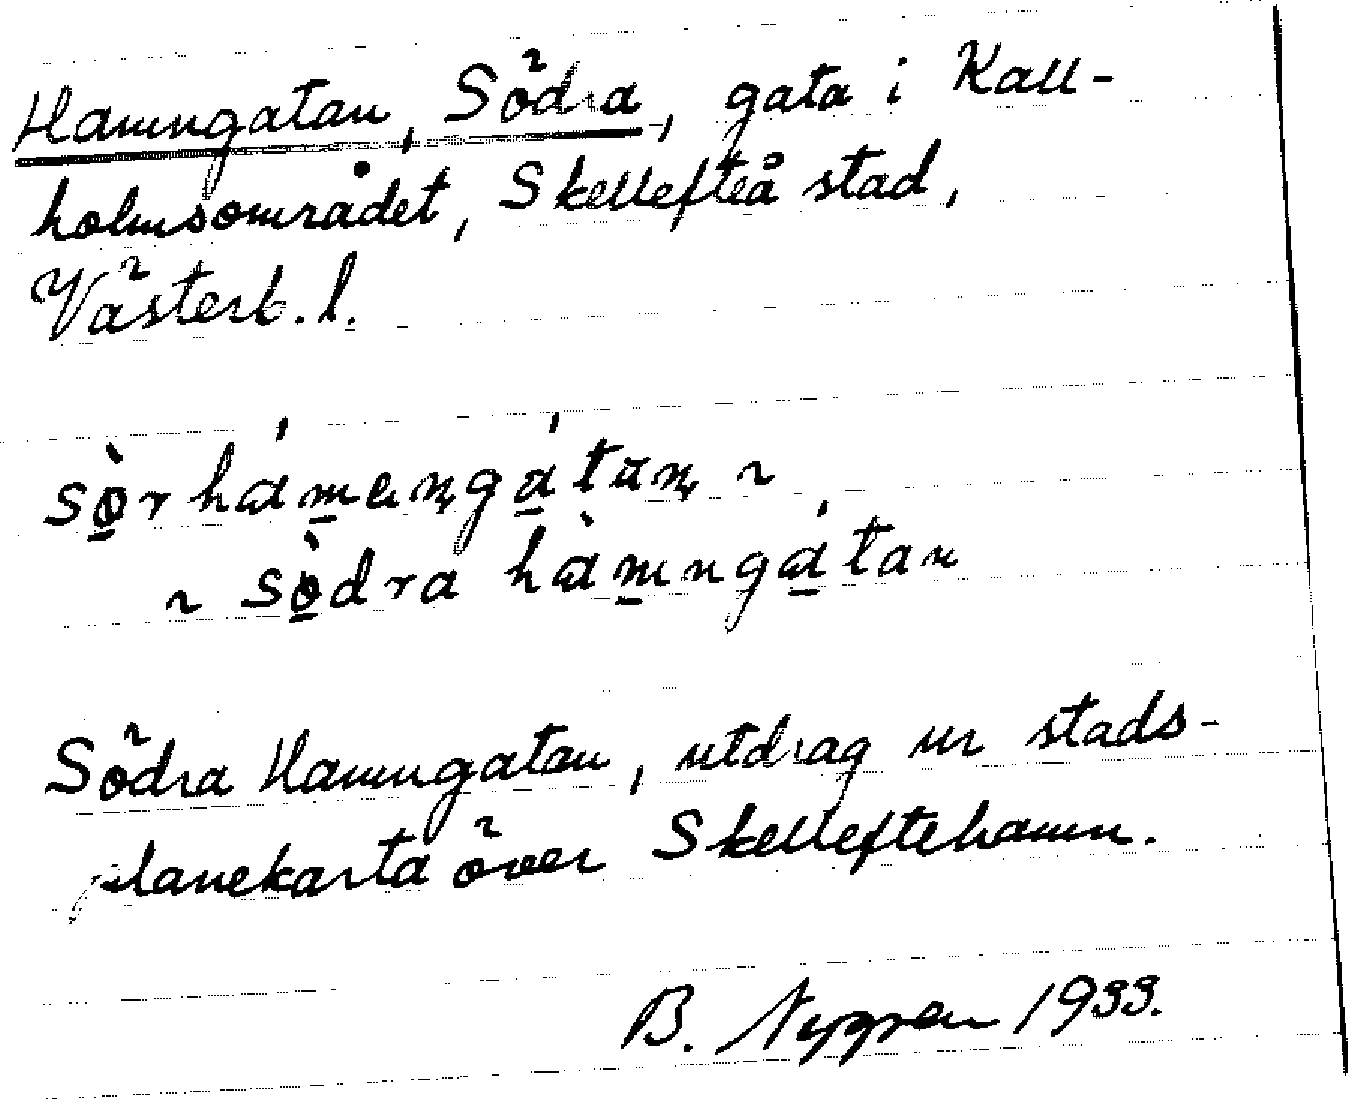 Hamngatan, Södra, gata i Kall-
holmsområdet, Skellefteå stad,
Västerb. l.
sø̀r hámengátan ~
~ sø̀dra hàmngátan
Södra Hamngatan, utdrag ur stads-
planekarta över Skelleftehamn.
B. Nygren 1933.